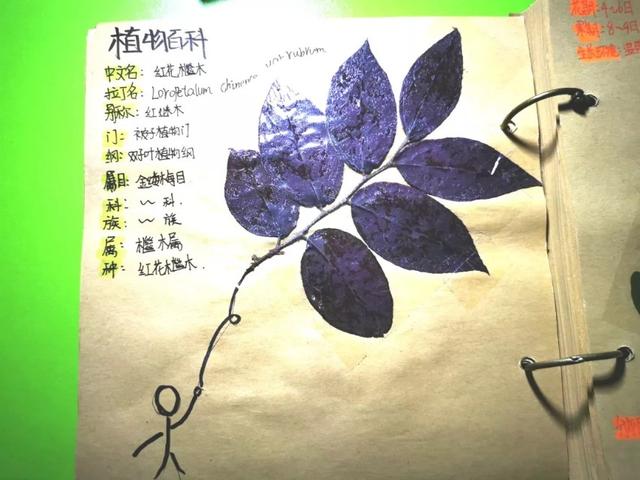 植物百科
中文名：红花檵木
拉丁名：Loropetalum chinense var. rubrum
别称：红继木
门：被子植物门
纲：双子叶植物纲
目：金缕梅目
科：〃 科.
族：〃 族
属：檵木属
种：红花檵木.
花期：4~6月
果期：8~9月
生长环境：